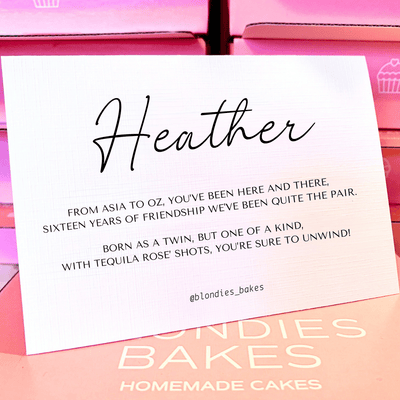 Heather
FROM ASIA TO OZ, YOU'VE BEEN HERE AND THERE,
SIXTEEN YEARS OF FRIENDSHIP WE'VE BEEN QUITE THE PAIR.
BORN AS A TWIN, BUT ONE OF A KIND,
WITH TEQUILA ROSE' SHOTS, YOU'RE SURE TO UNWIND!
@blondies_bakes
BLONDIES
BAKES
HOMEMADE CAKES